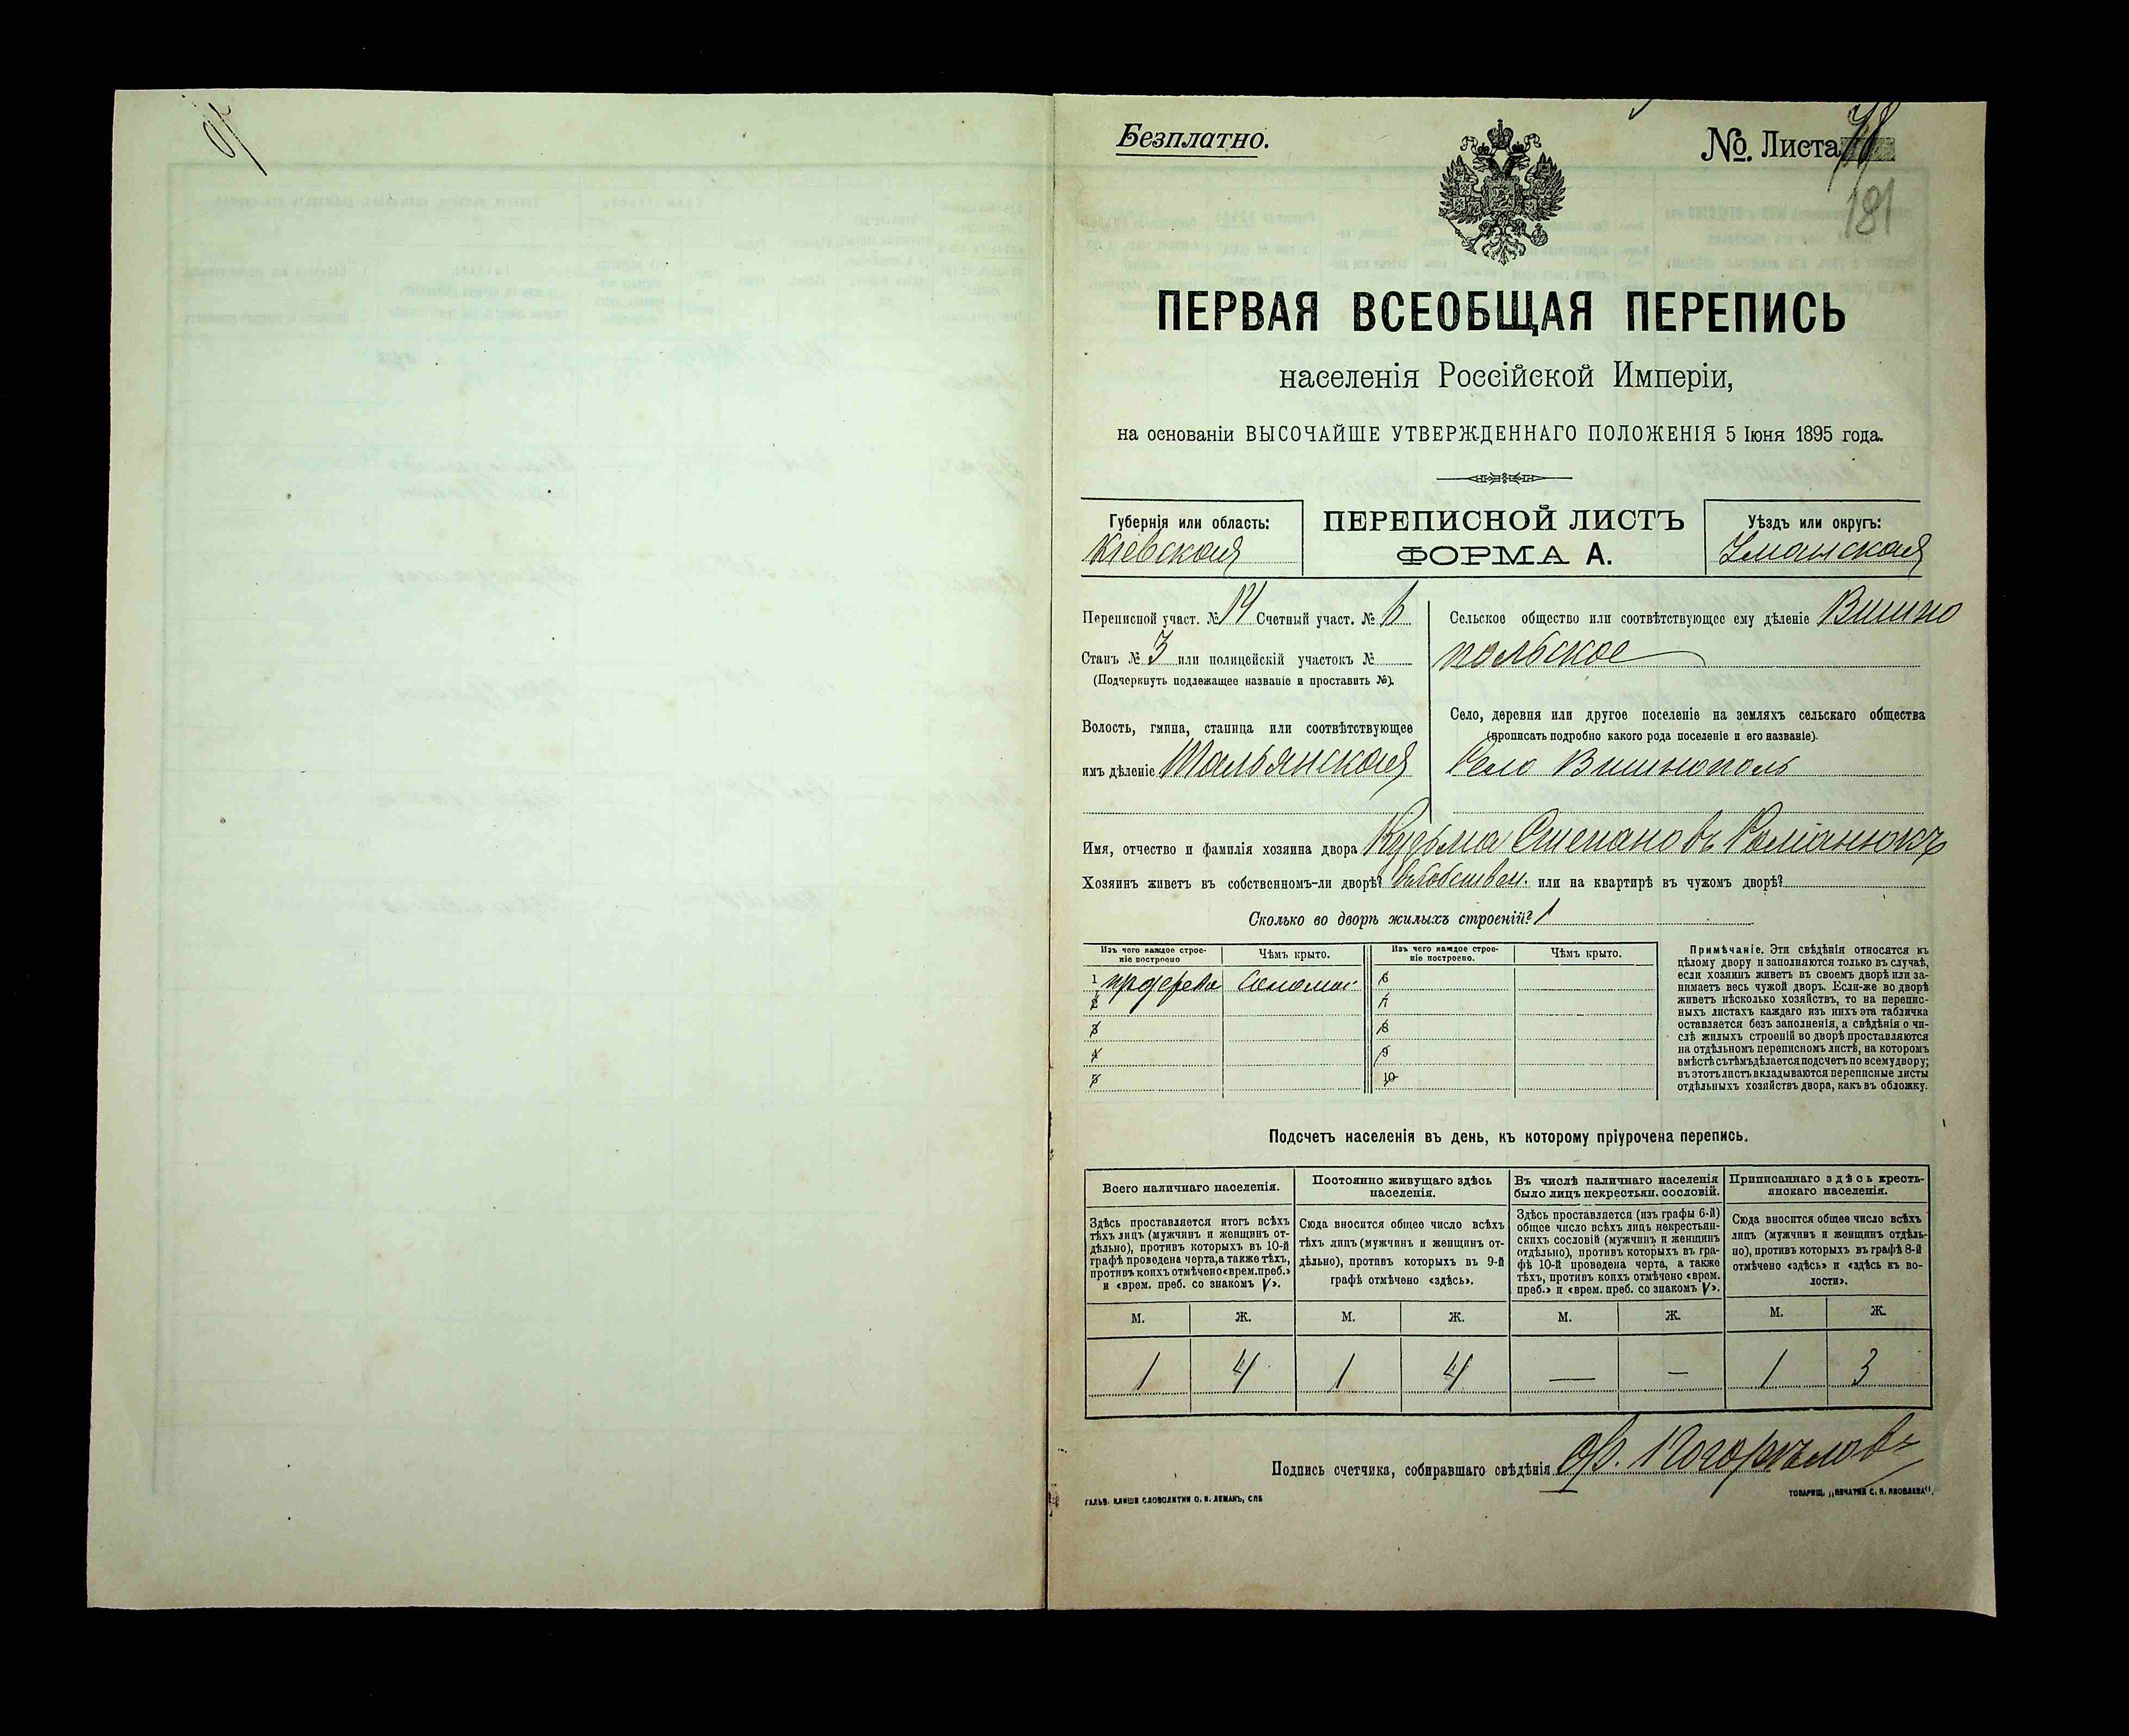 Безплатно.
№. Листа 78
181
ПЕРВАЯ ВСЕОБЩАЯ ПЕРЕПИСЬ
населенія Россійской Имперіи,
на основаніи ВЫСОЧАЙШЕ УТВЕРЖДЕННАГО ПОЛОЖЕНІЯ 5 Іюня 1895 года.
Губернія или область:
Кіевская
ПЕРЕПИСНОЙ ЛИСТЪ
ФОРМА А.
Уѣздъ или округъ:
Уманская
Переписной участ. № 14 Счетный участ. № 6
Станъ № 3 или полицейскій участокъ №
(Подчеркнуть подлежащее названіе и проставить №).
Волость, гмина, станица или соотвѣтствующее
имъ дѣленіе Тальянская
Сельское общество или соотвѣтствующее ему дѣленіе Вишно
польское
Село, деревня или другое поселеніе на земляхъ сельскаго общества
(прописать подробно какого рода поселеніе и его названіе).
Село Вишнополь
Имя, отчество и фамилія хозяина двора Кузьма Степановъ Романюкъ
Хозяинъ живетъ въ собственномъ-ли дворѣ? въ собствен. или на квартирѣ въ чужомъ дворѣ?
Сколько во дворѣ жилыхъ строеній? 1
Изъ чего каждое строе-
ніе построено
Чѣмъ крыто.
Изъ чего каждое строе-
ніе построено.
Чѣмъ крыто.
1 Соломой 6
2 7
3 8
4 9
5 10
Примѣчаніе. Эти свѣдѣнія относятся къ
цѣлому двору и заполняются только въ случаѣ,
если хозяинъ живетъ въ своемъ дворѣ или за-
нимаетъ весь чужой дворъ. Если-же во дворѣ
живетъ нѣсколько хозяйствъ, то на перепис-
ныхъ листахъ каждаго изъ нихъ эта табличка
оставляется безъ заполненія, а свѣдѣнія о чи-
слѣ жилыхъ строеній во дворѣ проставляются
на отдѣльномъ переписномъ листѣ, на которомъ
вмѣстѣ съ тѣмъ дѣлается подсчетъ по всему двору;
въ этотъ листъ вкладываются переписные листы
отдѣльныхъ хозяйствъ двора, какъ въ обложку.
Подсчетъ населенія въ день, къ которому пріурочена перепись.
Всего наличнаго населенія.
Здѣсь проставляется итогъ всѣхъ
тѣхъ лицъ (мужчинъ и женщинъ от-
дѣльно), противъ которыхъ въ 10-й
графѣ проведена черта, а также тѣхъ,
противъ коихъ отмѣчено «врем. преб.»
и «врем. преб. со знакомъ V».
Постоянно живущаго здѣсь
населенія.
Сюда вносится общее число всѣхъ
тѣхъ лицъ (мужчинъ и женщинъ от-
дѣльно), противъ которыхъ въ 9-й
графѣ отмѣчено «здѣсь».
Въ числѣ наличнаго населенія
было лицъ некрестьян. сословій.
Здѣсь проставляется (изъ графы 6-й)
общее число всѣхъ лицъ некрестьян-
скихъ сословій (мужчинъ и женщинъ
отдѣльно), противъ которыхъ въ гра-
фѣ 10-й проведена черта, а также
тѣхъ, противъ коихъ отмѣчено «врем.
преб.» и «врем. преб. со знакомъ V».
Приписаннаго здѣсь кресть-
янскаго населенія.
Сюда вносится общее число всѣхъ
лицъ (мужчинъ и женщинъ отдѣль-
но), противъ которыхъ въ графѣ 8-й
отмѣчено «здѣсь» и «здѣсь къ во-
лости».
М. Ж. М. Ж. М. Ж. М. Ж.
1 4 1 4 — — 1 3
Подпись счетчика, собиравшаго свѣдѣнія Погорѣловъ
ГАЛЬВ. КЛИШЕ СЛОВОЛИТНИ О. И. ЛЕМАНЪ, СПБ
ТОВАРИЩ. „ПЕЧАТНЯ С. П. ЯКОВЛЕВА".